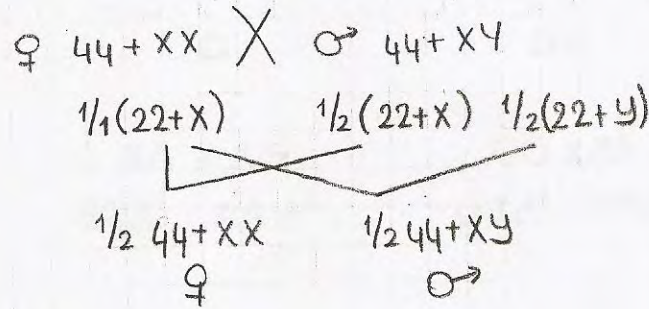 ♀ 44+XX X ♂ 44+XY
1/1(22+X) 1/2(22+X) 1/2(22+Y)
1/2 44+XX 1/2 44+XY
♀ ♂